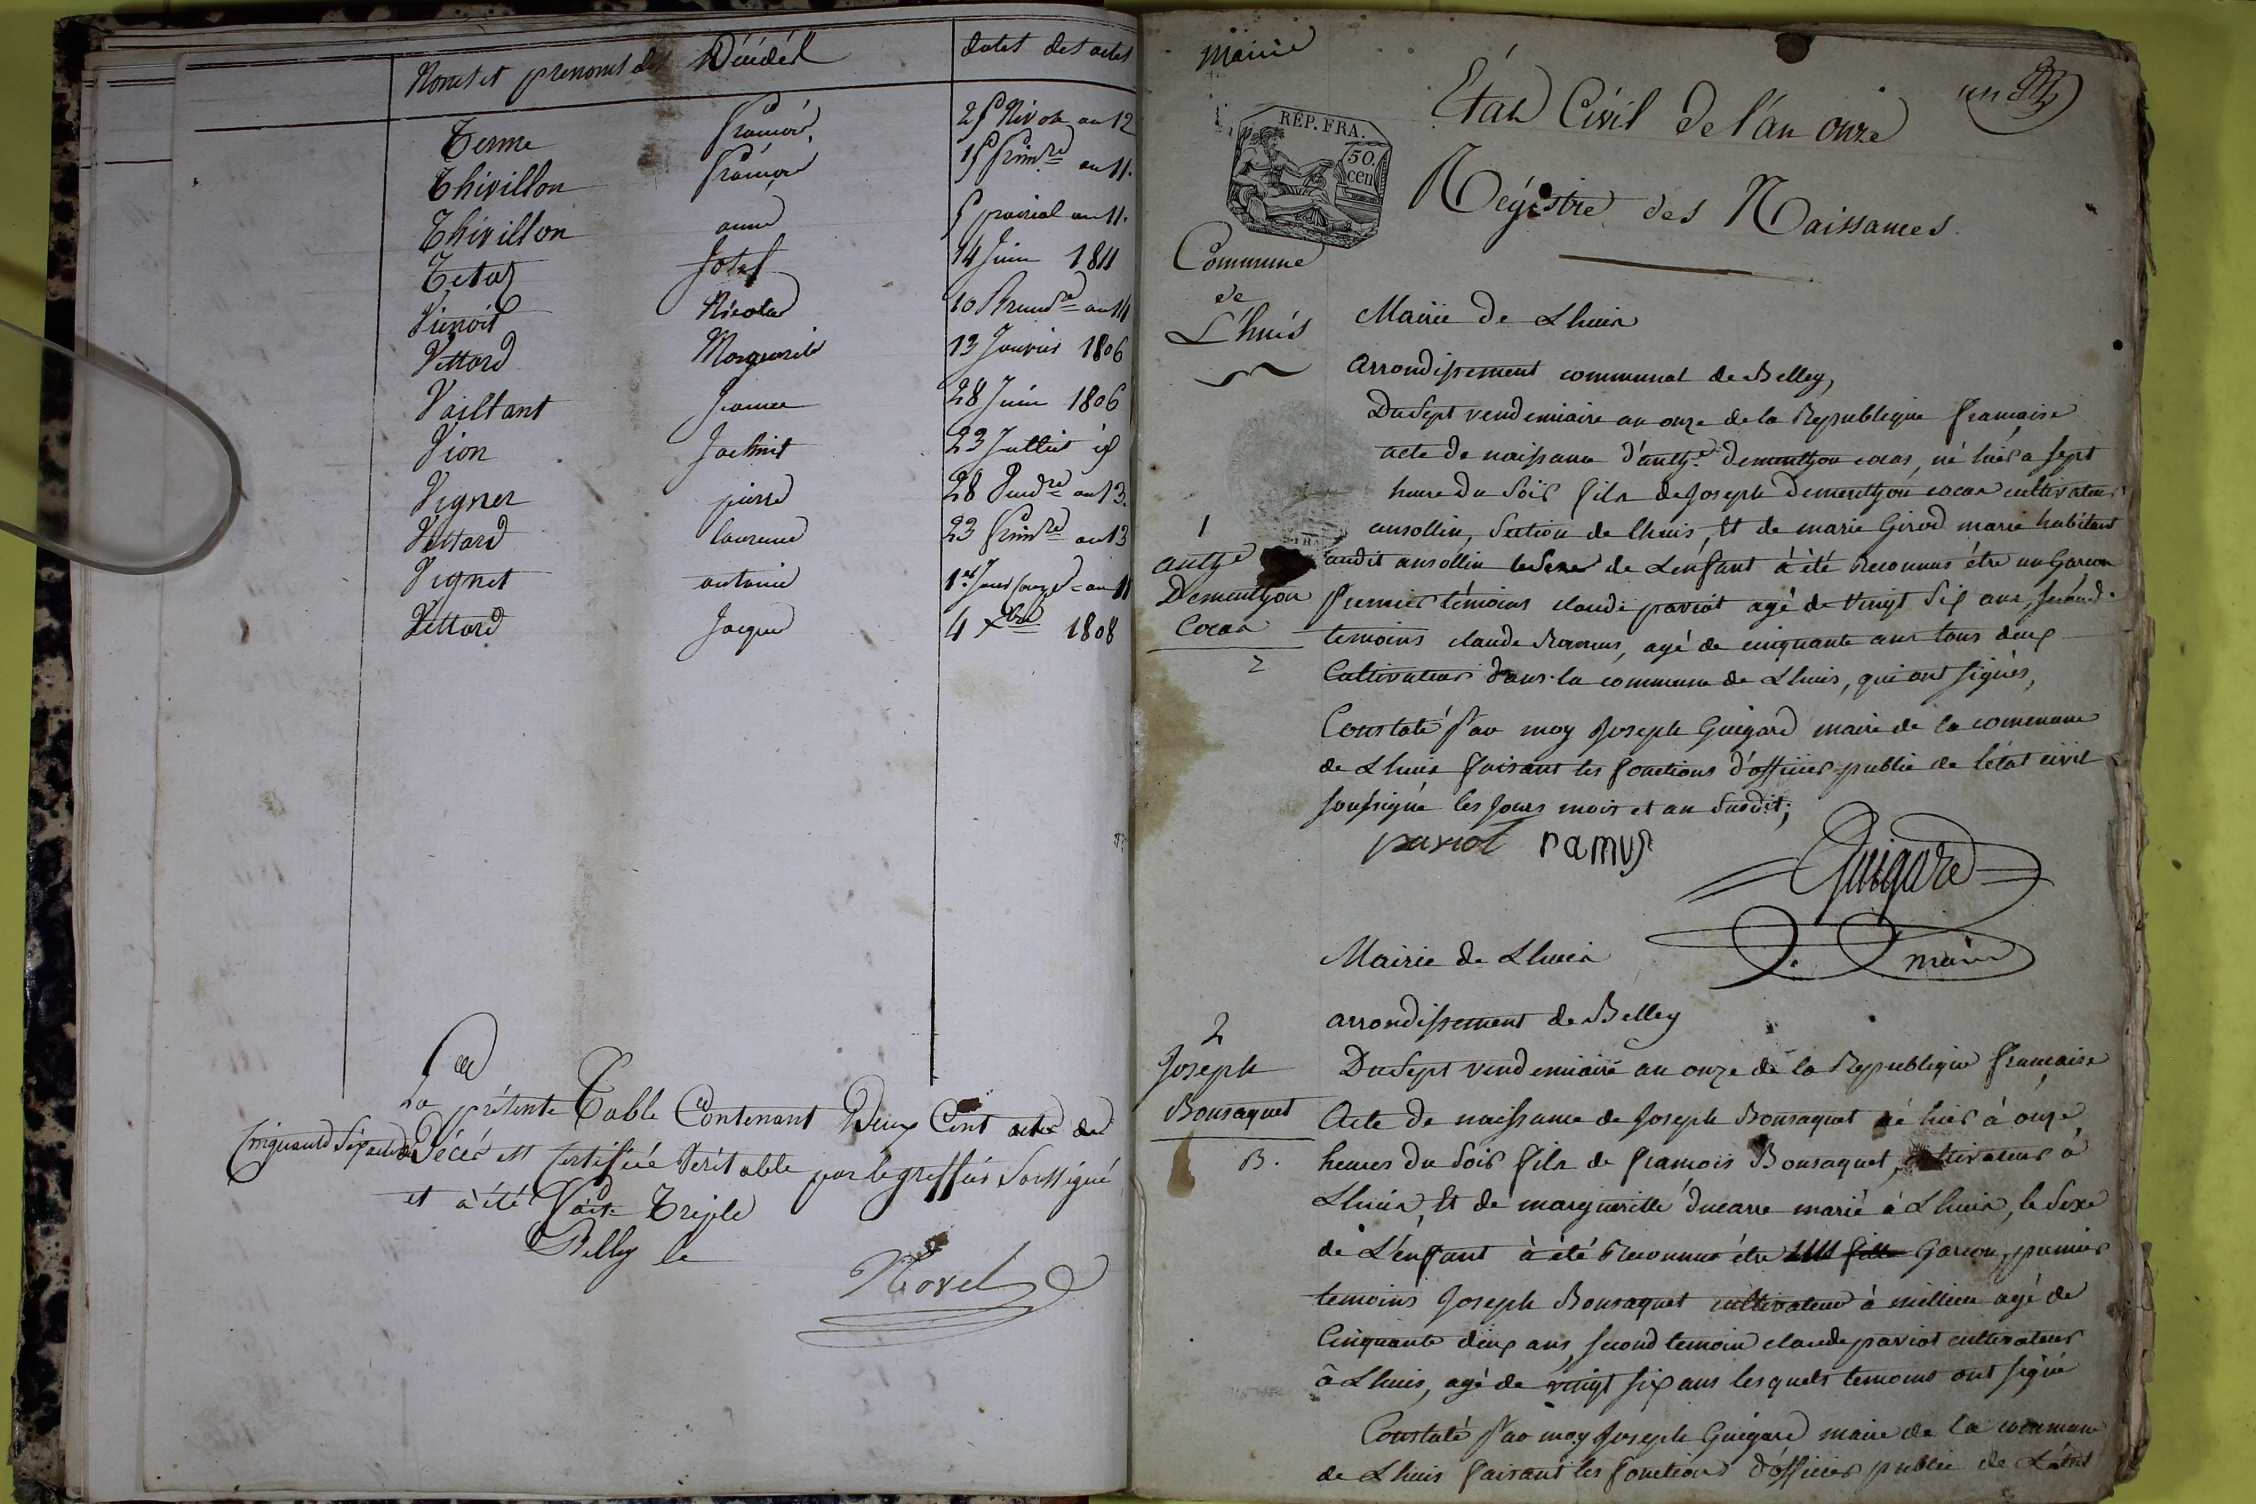 Noms et prenoms des Décédés
dates des actes
Terme françois 25 Nivose an 12
Thivillon françois 15 frim.re an 11.
Thivillon anne 5 prairial an 11.
Tetaz Josef 14 Juin 1811
Vienois Nicolas 10 Brum.re an 14
Vettard Marguerite 13 Janvier 1806
Vaillant 28 Juin 1806
Vion 23 Juillet
Vigner pierre 28 Vend.re an 13.
Vettard laurence 23 frim.re an 13
Vignet antoine an 11
Vettard Jacques 4 Xbre 1808
La présente Table Contenant Deux Cent actes de
Cinquante Six actes de Décès est certifiée Véritable par le greffier Soussigné
et à été faite Triple
Belley le
Morel
Mairie
REP. FRA.
50. cen
Commune
de
L'huis
un
Etat Civil de l'an onze
Régistre des Naissances
Mairie de Lhuis
arrondissement communal de Belley,
Du Sept vendemiaire an onze de la Republique française
acte de naissance d'anth.e Dementhon cocas, né hier a sept
heure du Soir fils de Joseph Dementhon cocas cultivateur
ansollin, Section de Lhuis, et de marie Girod marié habitant
audit ansollin le Sexe de L'enfant à été Reconnus être un Garcon
premier témoins claude paviot agé de vingt Six ans, second
temoins claude Ramus, agé de cinquante ans tous deux
Cultivateur dans la commune de Lhuis, qui ont signés,
Constaté par moy Joseph Guigard maire de la commune
de Lhuis faisant les fonctions d'officier public de l'état civil
soussigné les Jours mois et an Susdit;
paviot ramus
Guigard
maire
1
anth.e
Dementhon
Cocas
2
Mairie de Lhuis
arrondissement de Belley
2
Joseph
Bousaquet
B.
Du Sept vendemiaire an onze de la Republique française
Acte de naissance de Joseph Bousaquet né hier à onze,
heures du Soir fils de francois Bousaquet, cultivateur à
Lhuis, et de marguerille ducarre marié à Lhuis, le Sexe
de L'enfant à été Reconnus être un fille Garcon, premier
temoins Joseph Bousaquet cultivateur à millieu agé de
Cinquante deux ans, second temoin claude paviot cultivateur
à Lhuis, agé de vingt six ans lesquels temoins ont signé
Constaté par moy Joseph Guigard maire de la commune
de Lhuis faisant les fonctions d'officier public de L'état